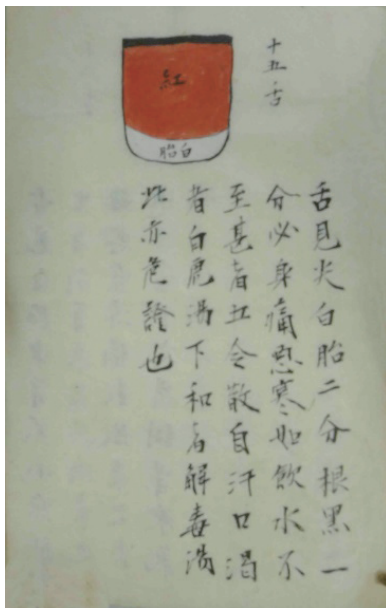 十五舌
紅
白胎
舌見尖白胎二分根黑一
分必身痛惡寒如飲水不
至甚者五令散自汗口渴
者白虎湯下和者解毒湯
此亦危證也